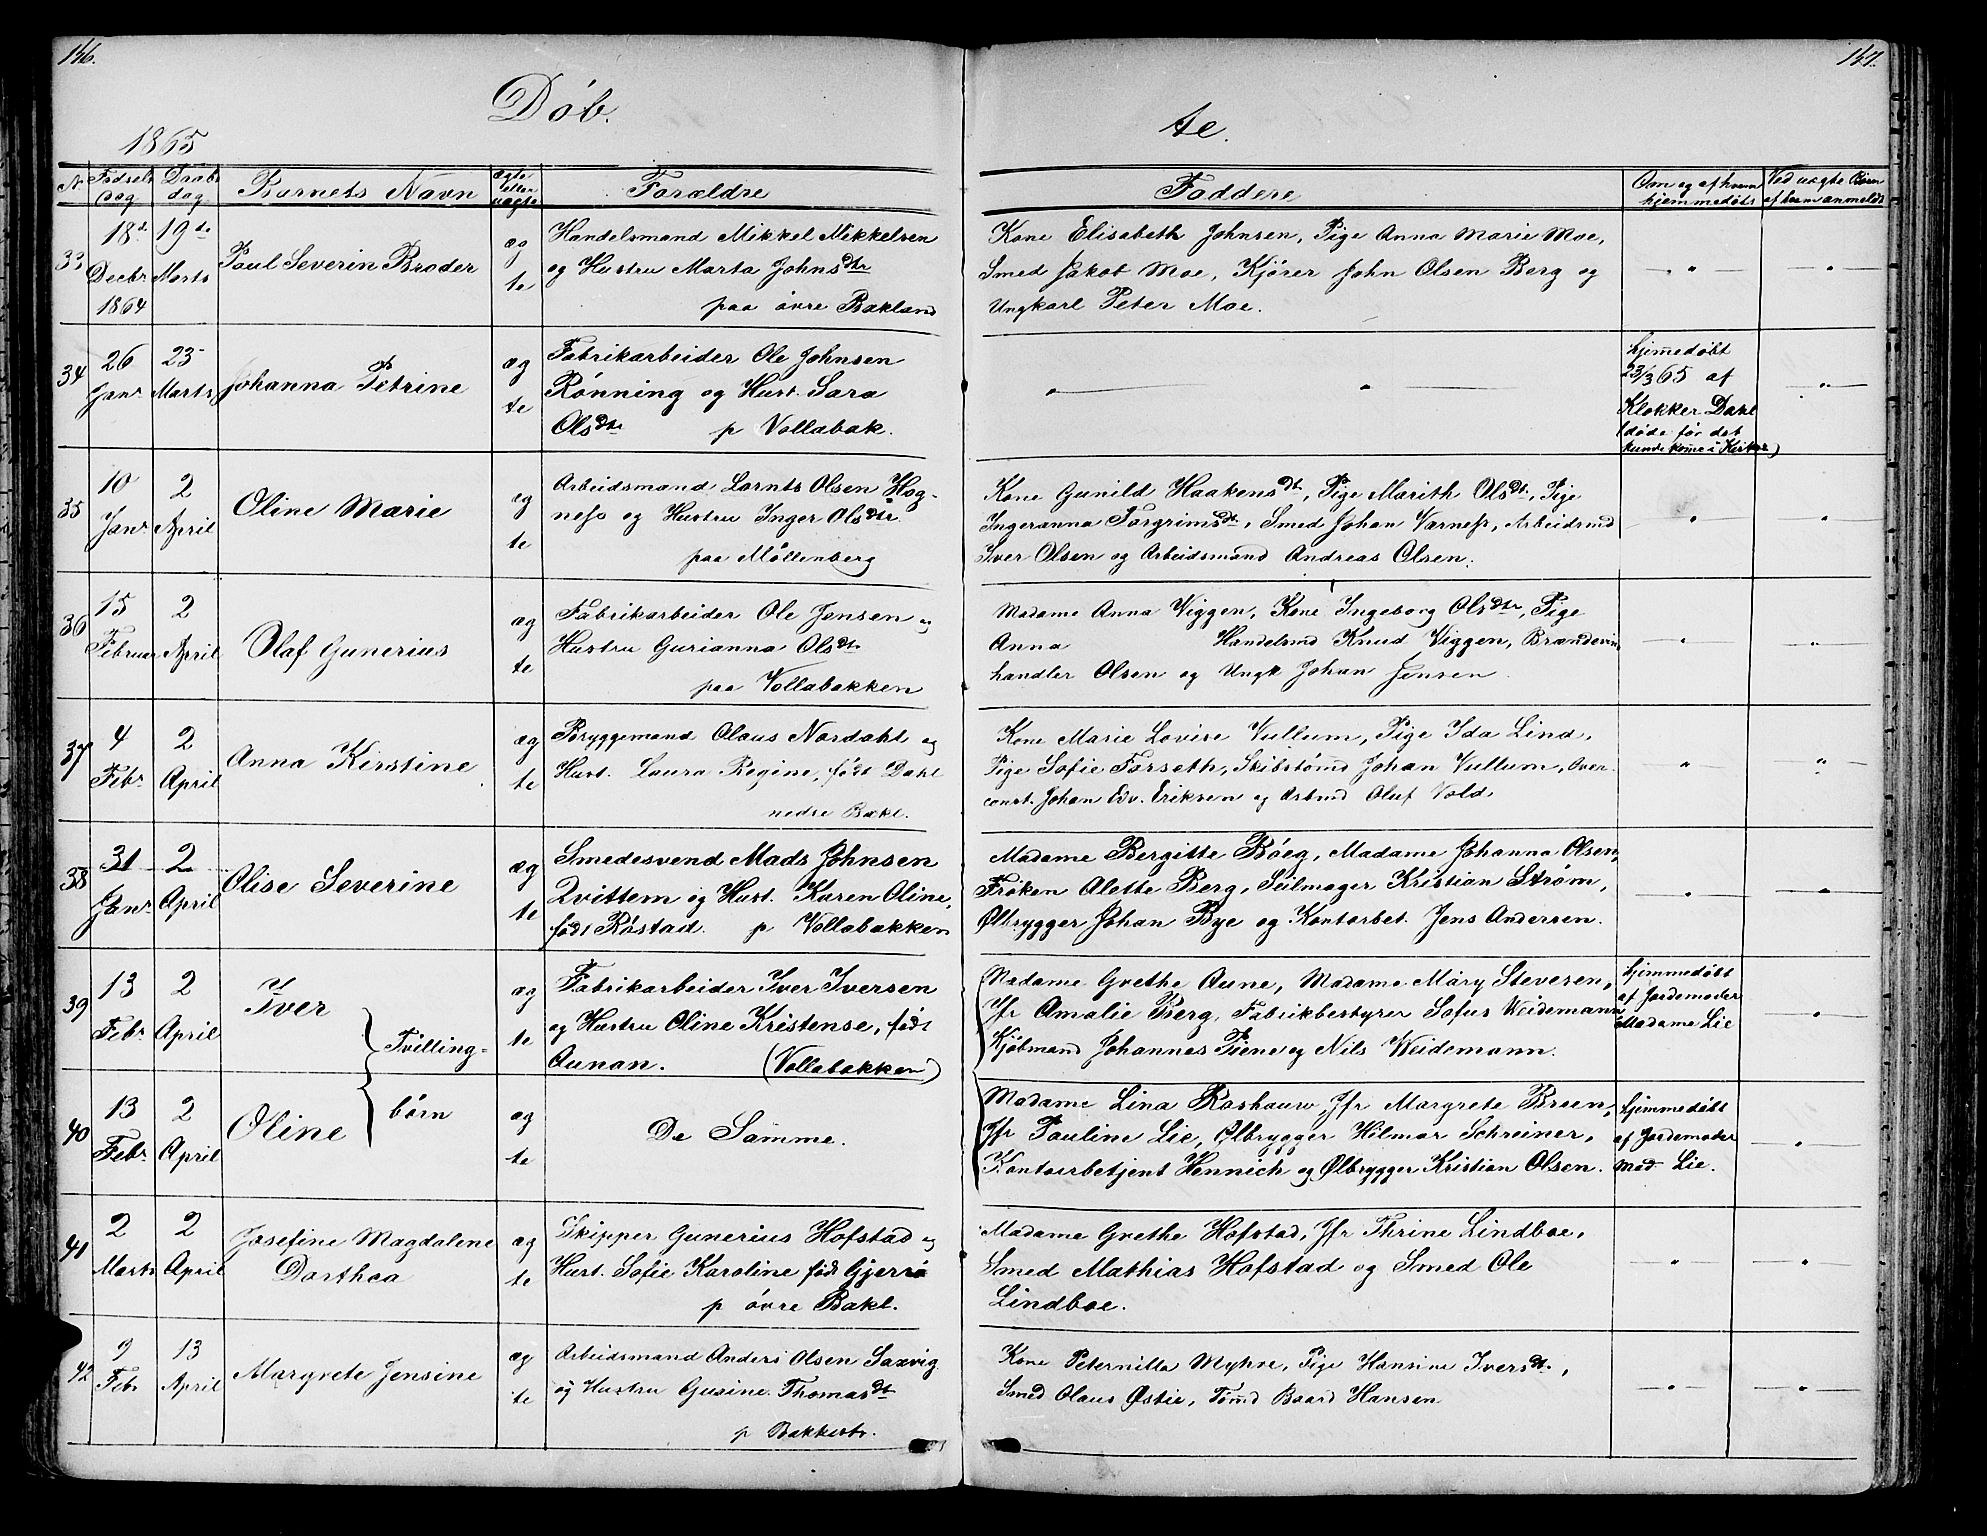 156.
157.
Döb.
te.
1865
N. Fødsels dag Daabs dag Barnets Navn ægte eller uægte Forældre
Faddere Om og af hvem hjemmedøbt Ved uægte Børn af hvem anmeldt
33 18de Decbr 1864 19de Marts Paul Severin Brøder ægte
Handelsmand Mikkel Mikkelsen
og Hustru Marta Johnsdtr
paa øvre Bakland
Kone Elisabeth Johnsen, Pige Anna Marie Moe,
Smed Jakob Moe, Kjører John Olsen Berg og
Ungkarl Peter Moe.
34 26 Janr 23 Marts Johanna Petrine ægte
Fabrikarbeider Ole Johnsen
Rønning og Hust. Sara
Olsdtr p Vollabak.
hjemedøbt
23/3 65 af
Klokker Dahl
(døde før det
kunde kome i Kirken)
35 10 Janr 2 April Oline Marie ægte
Arbeidsmand Lornts Olsen Hog-
ness og Hustru Inger Olsdtr.
paa Møllenberg
Kone Gunild Haakensdt, Pige Marith Olsdt, Pige
Ingeranna Torgrimsdt, Smed Johan Varness, Arbeidsmd
Iver Olsen og Arbeidsmand Andreas Olsen.
36 15 Februar 2 April Olaf Gunerius ægte
Fabrikarbeider Ole Jensen og
Hustru Gurianna Olsdtr
paa Vollabakken
Madame Anna Viggen, Kone Ingeborg Olsdtr, Pige
Anna Handelsmd Knud Viggen, Brændevin
handler Olsen og Ungk Johan Jensen.
37 4 Febr 2 April Anna Kirstine ægte
Bryggemand Olaus Nordahl og
Hust. Laura Regine, født Dahl
nedre Bakl.
Kone Marie Lovise Vullum, Pige Ida Lind,
Pige Sofie Forseth, Skibstømd Johan Vullum, Over-
const. Johan Edv. Eriksen og Arbmd Oluf Vold.
38 31 Janr 2 April Olise Severine ægte
Smedesvend Mads Johnsen
Qvittem og Hust. Karen Oline,
født Røstad. p Vollabakken
Madame Bergitte Böeg, Madame Johanna Olsen,
Frøken Alette Berg, Seilmager Kristian Strøm,
Ølbrygger Johan Bye og Kontorbet. Jens Andersen.
39 13 Febr 2 April Iver } Tvilling- ægte
Fabrikarbeider Iver Iversen
og Hustru Oline Kristense, født
Aunan. (Vollabakken)
Madame Grethe Aune, Madame Mary Steversen,
Jfr Amalie Berg, Fabrikbestyrer Sofus Weidemann,
Kjöbmand Johannes Fiene og Nils Weidemann.
hjemmedøbt
af Jordemoder
Madame Lie
40 13 Febr. 2 April Oline } børn ægte
De Samme.
Madame Lina Roshauw, Jfr Margrete Breen,
Jfr Pauline Lie, Ølbrygger Hilmar Schreiner,
Kontorbetjent Hennich og Ølbrygger Kristian Olsen.
hjemmedøbt
af Jordemoder
Mad. Lie.
41 2 Marts 2 April Josefine Magdalene Dorthea ægte
Skipper Gunerius Hofstad og
Hust. Sofie Karoline født Gjerrø
p øvre Bakl.
Madame Grethe Hofstad, Jfr Thrine Lindboe,
Smed Mathias Hofstad og Smed Ole
Lindboe.
42 9 Febr 13 April Margrete Jensine ægte
Arbeidsmand Anders Olsen Saxvig
og Hustru Gusine Thomasdt
p Bakkestr.
Kone Peternilla Myhre, Pige Hansine Iversdt.,
Smed Olaus Østie, Tømd Baard Hansen